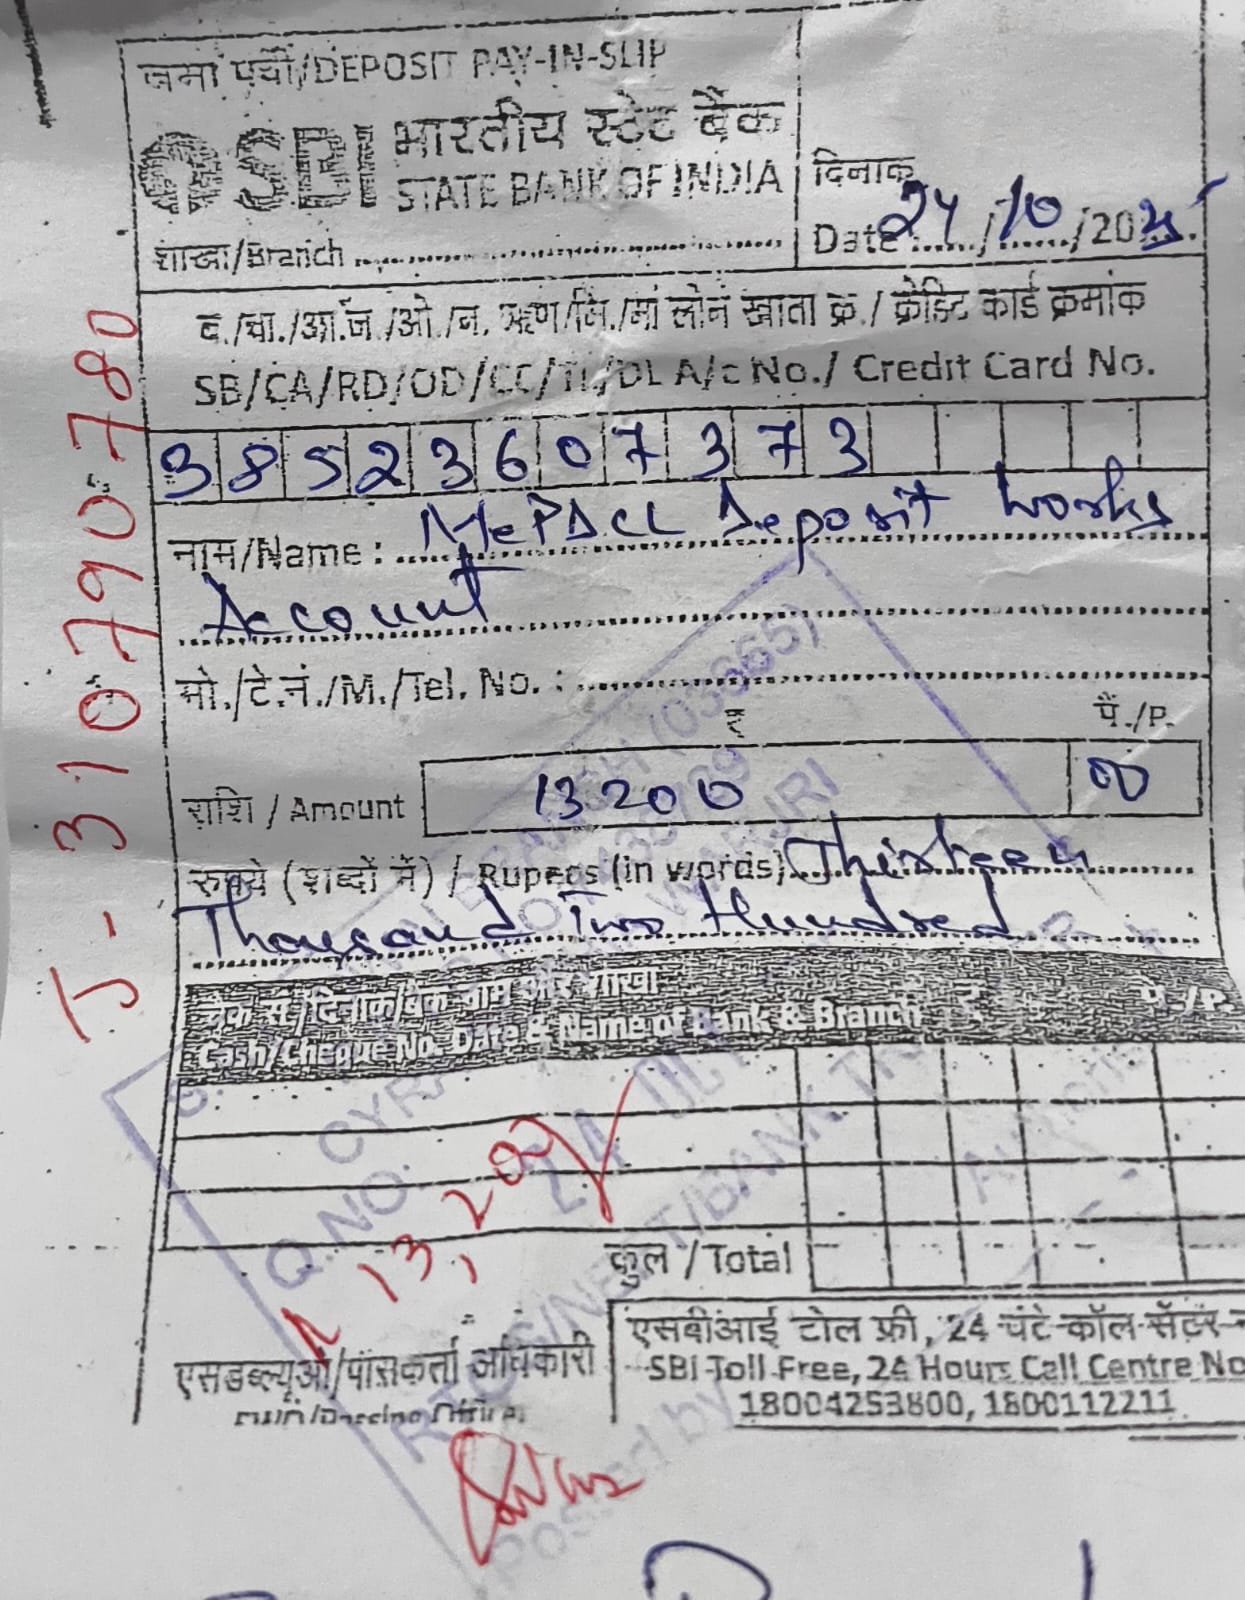 जमा पर्ची/DEPOSIT PAY-IN-SLIP
SBI भारतीय स्टेट बैंक
STATE BANK OF INDIA
शाखा/Branch
दिनांक
Date 24/10/2025
ब./चा./आ.ज./ओ./न. ऋण/मि./मां लोन खाता क्र./ क्रेडिट कार्ड क्रमांक
SB/CA/RD/OD/CC/TL/DL A/c No./ Credit Card No.
38523607373
नाम/Name : MePDCL Deposit Works
Account
मो./टे.नं./M./Tel. No. :
₹ पै./P.
राशि / Amount 13200 00
रुपये (शब्दों में) / Rupees (in words) Thirteen
Thousand Two Hundred
चैक सं/दिनांक/बैंक नाम और शाखा ₹ पै./P.
Cash/Cheque No. Date & Name of Bank & Branch
कुल / Total
एसडब्ल्यूओ/पासकर्ता अधिकारी
एसबीआई टोल फ्री, 24 घंटे-कॉल-सेंटर
SBI Toll Free, 24 Hours Call Centre No
18004253800, 1800112211
J- 310790780
13,200
24
RTGS/NEFT/BANK
Posted by